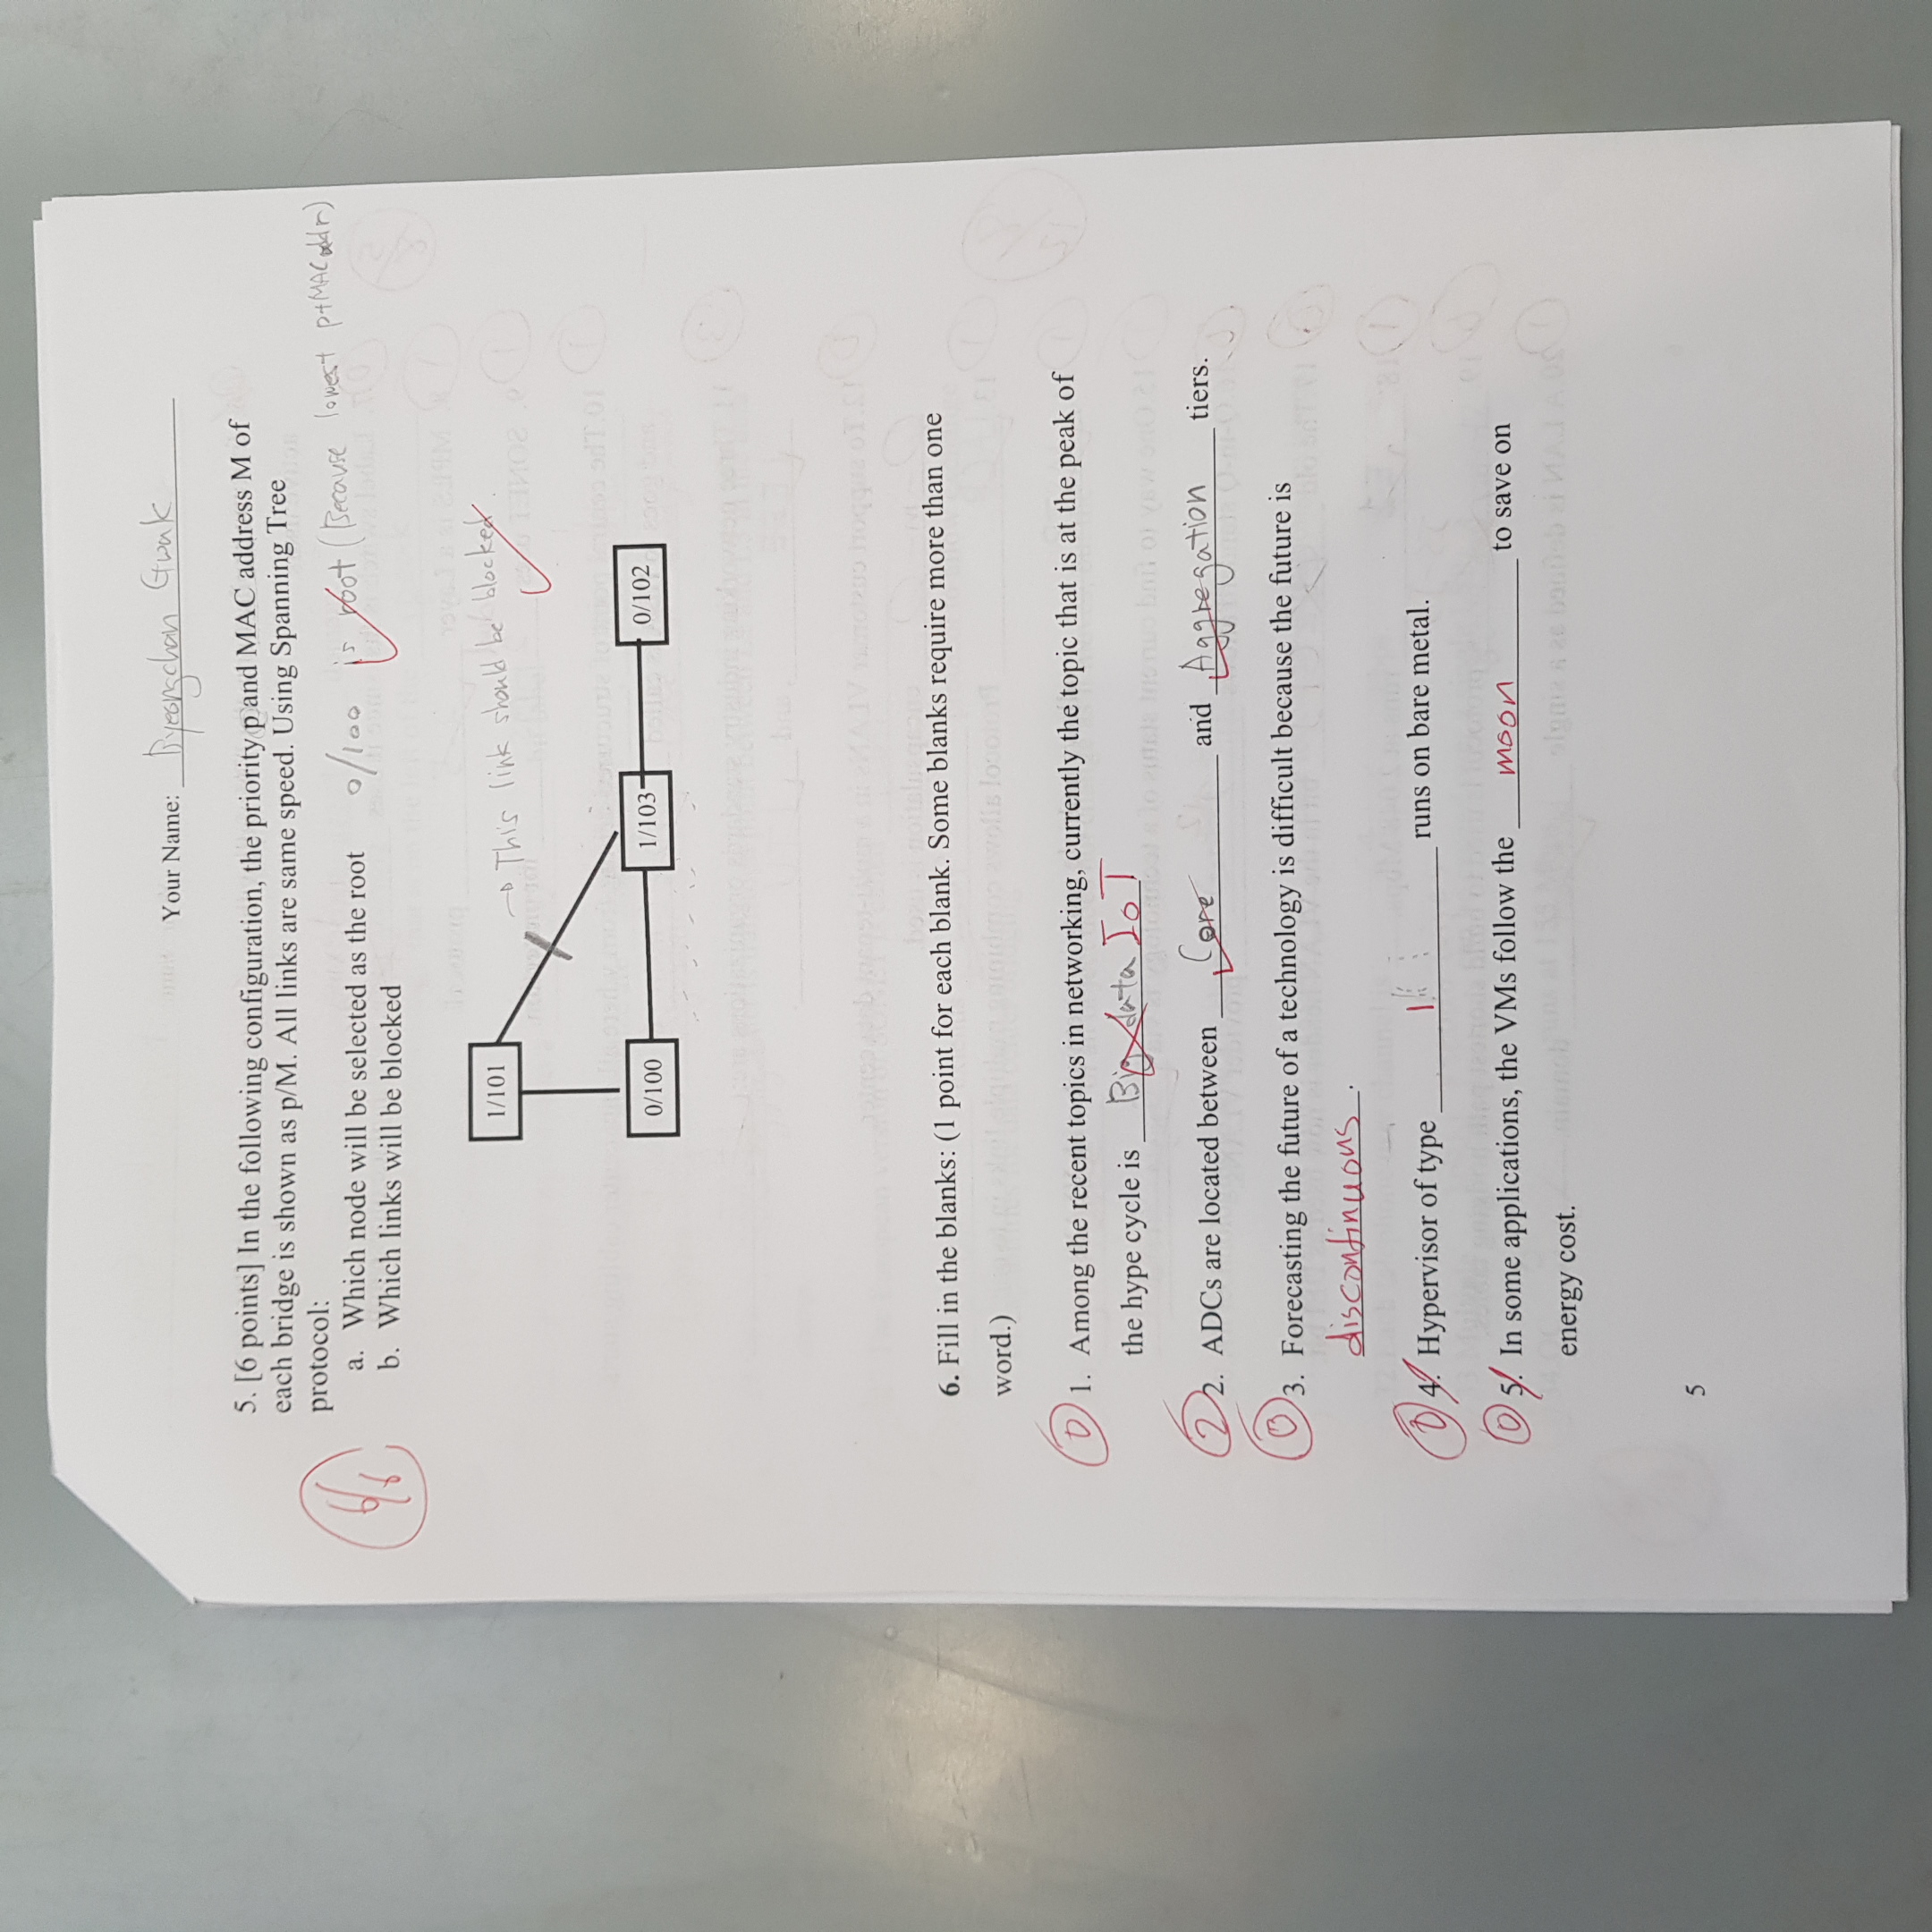 Your Name: Byeongchan Gwak
5. [6 points] In the following configuration, the priority p and MAC address M of
each bridge is shown as p/M. All links are same speed. Using Spanning Tree
protocol:
6/6
a. Which node will be selected as the root 0/100 is root (Because lowest p+MAC addr)
b. Which links will be blocked
1/101
→ This link should be blocked.
0/100 1/103 0/102
6. Fill in the blanks: (1 point for each blank. Some blanks require more than one
word.)
0 1. Among the recent topics in networking, currently the topic that is at the peak of
the hype cycle is Big data IoT
2 2. ADCs are located between Core and Aggregation tiers.
0 3. Forecasting the future of a technology is difficult because the future is
discontinuous.
4. Hypervisor of type 1 runs on bare metal.
0 5. In some applications, the VMs follow the moon to save on
energy cost.
5